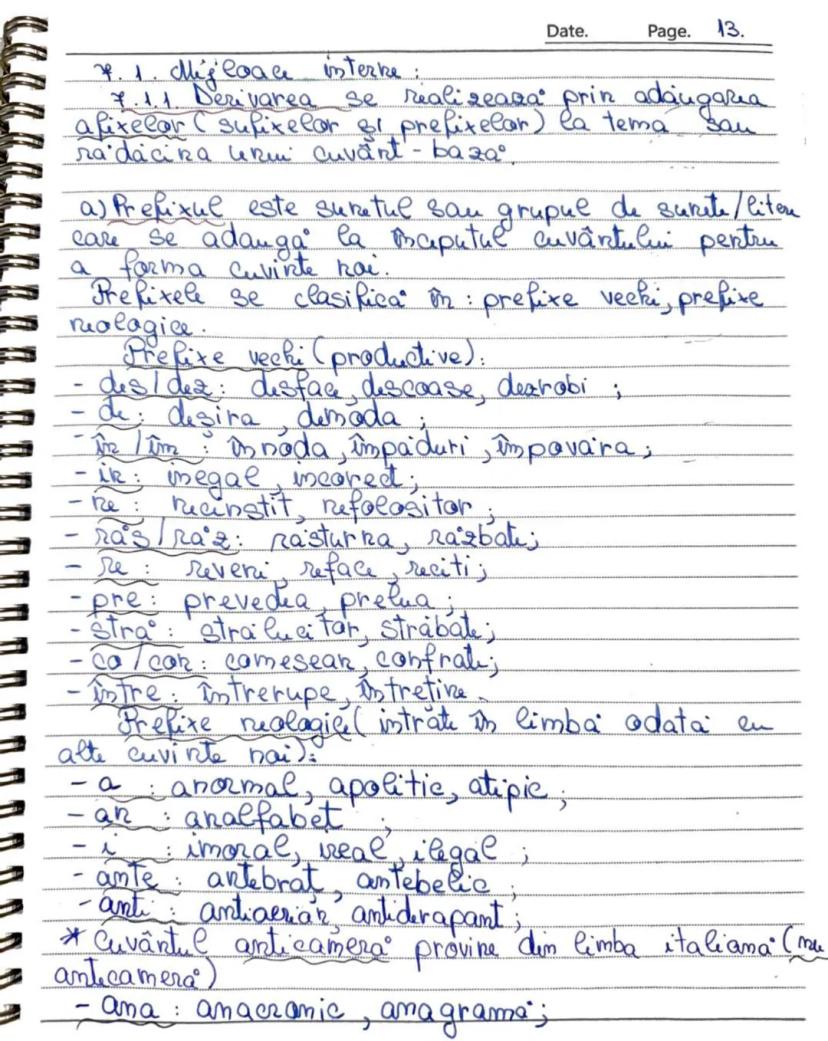 Date. Page. 13.
7.1. Mijloace interne:
7.1.1. Derivarea se realizează prin adăugarea
afixelor (sufixelor și prefixelor) la tema sau
rădăcina unui cuvânt-bază.
a) Prefixul este sunetul sau grupul de sunete/litere
care se adaugă la începutul cuvântului pentru
a forma cuvinte noi.
Prefixele se clasifică în: prefixe vechi, prefixe
neologice.
Prefixe vechi (productive):
- des/dez: desface, descoase, dezrobi ;
- de: deșira, demoda ;
- în/îm : înnoda, împăduri, împovăra;
- in: inegal, incorect;
- ne : necinstit, nefolositor ;
- răs/răz: răsturna, răzbate;
- re : reveni, reface, reciti;
- pre: prevedea, prelua ;
- stră : strălucitor, străbate;
- co/con: comesean, confrate;
- între: întrerupe, întreține.
Prefixe neologice (intrate în limbă odată cu
alte cuvinte noi):
- a : anormal, apolitic, atipic ;
- an : analfabet ;
- i : imoral, ireal, ilegal ;
- ante : antebraț, antebelic ;
- anti : antiaerian, antiderapant ;
* Cuvântul anticameră provine din limba italiană (nu
antecameră)
- ana : anacronic, anagramă;